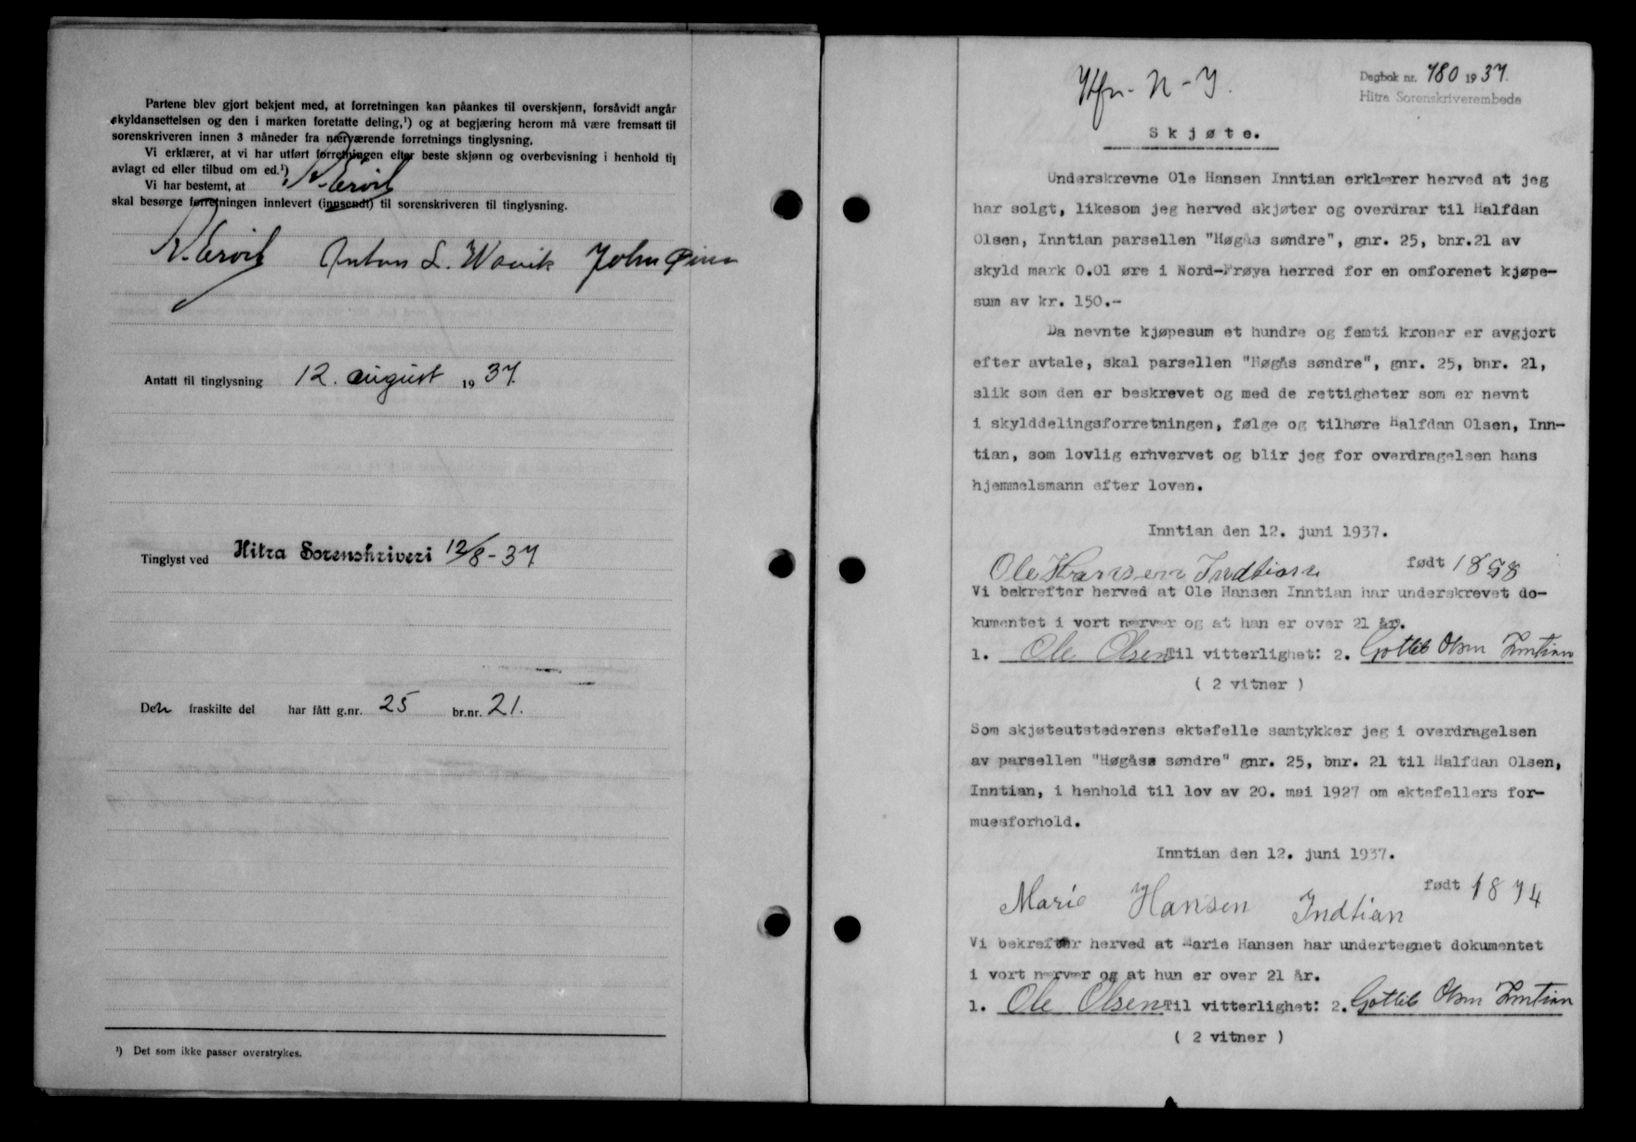 Partene blev gjort bekjent med, at forretningen kan påankes til overskjønn, forsåvidt angår
skyldansettelsen og den i marken foretatte deling,¹) og at begjæring herom må være fremsatt til
sorenskriveren innen 3 måneder fra nærværende forretnings tinglysning.
Vi erklærer, at vi har utført forretningen efter beste skjønn og overbevisning i henhold til
avlagt ed eller tilbud om ed.¹)
Vi har bestemt, at
skal besørge forretningen innlevert (innsendt) til sorenskriveren til tinglysning.
Anton L. Wavik John
Antatt til tinglysning 12. august 1937.
Tinglyst ved Hitra Sorenskriveri 12/8-37
Den fraskilte del har fått g.nr. 25 br.nr. 21.
¹) Det som ikke passer overstrykes.
N-
Dagbok nr. 780 1937.
Hitra Sorenskriverembede
Skjøte.
Underskrevne Ole Hansen Inntian erklærer herved at jeg
har solgt, likesom jeg herved skjøter og overdrar til Halfdan
Olsen, Inntian parsellen "Høgås søndre", gnr. 25, bnr.21 av
skyld mark 0.01 øre i Nord-Frøya herred for en omforenet kjøpe-
sum av kr. 150.-
Da nevnte kjøpesum et hundre og femti kroner er avgjort
efter avtale, skal parsellen "Høgås søndre", gnr. 25, bnr. 21,
slik som den er beskrevet og med de rettigheter som er nevnt
i skylddelingsforretningen, følge og tilhøre Halfdan Olsen, Inn-
tian, som lovlig erhvervet og blir jeg for overdragelsen hans
hjemmelsmann efter loven.
Inntian den 12. juni 1937.
Ole Hansen Indtian født 1858
Vi bekrefter herved at Ole Hansen Inntian har underskrevet do-
kumentet i vort nærvær og at han er over 21 år.
1. Ole Olsen Til vitterlighet: 2. Gottleb Olsen Inntian
( 2 vitner )
Som skjøteutstederens ektefelle samtykker jeg i overdragelsen
av parsellen "Høgåsa søndre" gnr. 25, bnr. 21 til Halfdan Olsen,
Inntian, i henhold til lov av 20. mai 1927 om ektefellers for-
muesforhold.
Inntian den 12. juni 1937.
født 1874
Marie Hansen Indtian
Vi bekrefter herved at Marie Hansen har undertegnet dokumentet
i vort nærvær og at hun er over 21 år.
1. Ole Olsen Til vitterlighet: 2. Gottleb Olsen Inntian
( 2 vitner )